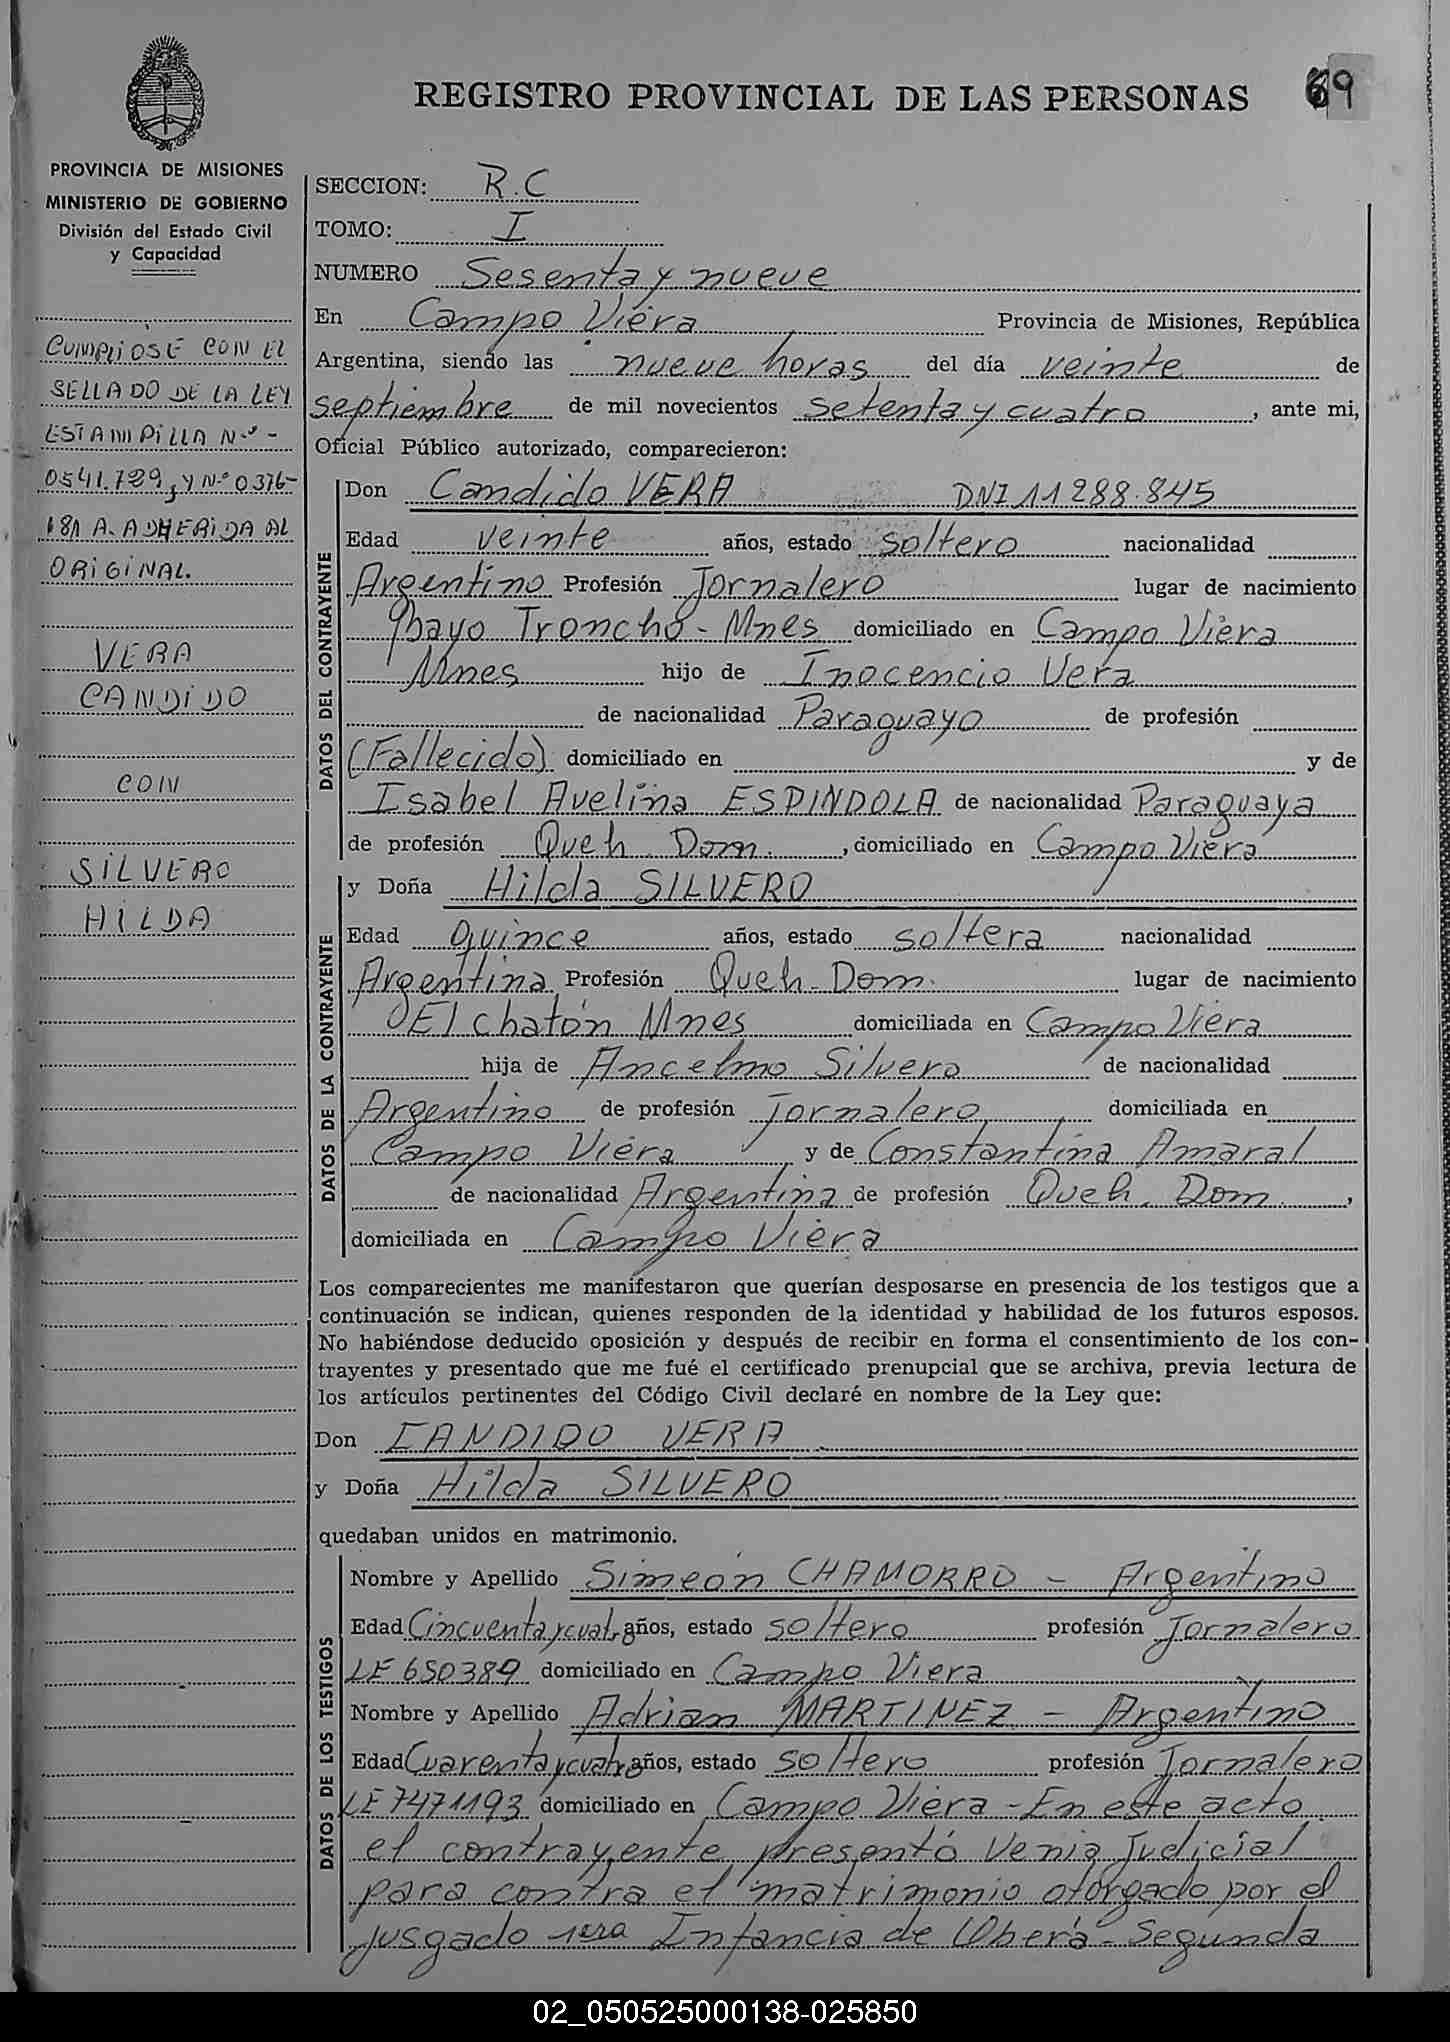 REGISTRO PROVINCIAL DE LAS PERSONAS 69
PROVINCIA DE MISIONES
MINISTERIO DE GOBIERNO
División del Estado Civil
y Capacidad
CUMPLIOSE CON EL
SELLADO DE LA LEY
ESTAMPILLA Nº-
0541.789, y Nº 0376-
181 A. ADHERIDA AL
ORIGINAL.
VERA
CANDIDO
CON
SILVERO
HILDA
SECCION: R.C
TOMO: I
NUMERO Sesenta y nueve
En Campo Viera Provincia de Misiones, República
Argentina, siendo las nueve horas del día veinte de
septiembre de mil novecientos setenta y cuatro, ante mi,
Oficial Público autorizado, comparecieron:
DATOS DEL CONTRAYENTE
Don Candido VERA DNI 11288.845
Edad veinte años, estado soltero nacionalidad
Argentino Profesión Jornalero lugar de nacimiento
Troncho - Mnes domiciliado en Campo Viera
Mnes hijo de Inocencio Vera
de nacionalidad Paraguayo de profesión
(Fallecido) domiciliado en y de
Isabel Avelina ESPINDOLA de nacionalidad Paraguaya
de profesión Queh. Dom. , domiciliado en Campo Viera
DATOS DE LA CONTRAYENTE
y Doña Hilda SILVERO
Edad Quince años, estado soltera nacionalidad
Argentina Profesión Queh. Dom. lugar de nacimiento
El chatón Mnes domiciliada en Campo Viera
hija de Ancelmo Silvero de nacionalidad
Argentino de profesión Jornalero domiciliada en
Campo Viera y de Constantina Amaral
de nacionalidad Argentina de profesión Queh. Dom. ,
domiciliada en Campo Viera
Los comparecientes me manifestaron que querían desposarse en presencia de los testigos que a
continuación se indican, quienes responden de la identidad y habilidad de los futuros esposos.
No habiéndose deducido oposición y después de recibir en forma el consentimiento de los con-
trayentes y presentado que me fué el certificado prenupcial que se archiva, previa lectura de
los artículos pertinentes del Código Civil declaré en nombre de la Ley que:
Don CANDIDO VERA
y Doña Hilda SILVERO
quedaban unidos en matrimonio.
DATOS DE LOS TESTIGOS
Nombre y Apellido Simeón CHAMORRO - Argentino
Edad Cincuenta y cuatro años, estado soltero profesión Jornalero
LE 650389 domiciliado en Campo Viera
Nombre y Apellido Adrian MARTINEZ - Argentino
Edad Cuarenta y cuatro años, estado soltero profesión Jornalero
LE 7471193 domiciliado en Campo Viera - En este acto
el contrayente presentó Venia Judicial
para contra el matrimonio otorgado por el
jusgado 1era Infancia de Oberá - Segunda
02_050525000138-025850